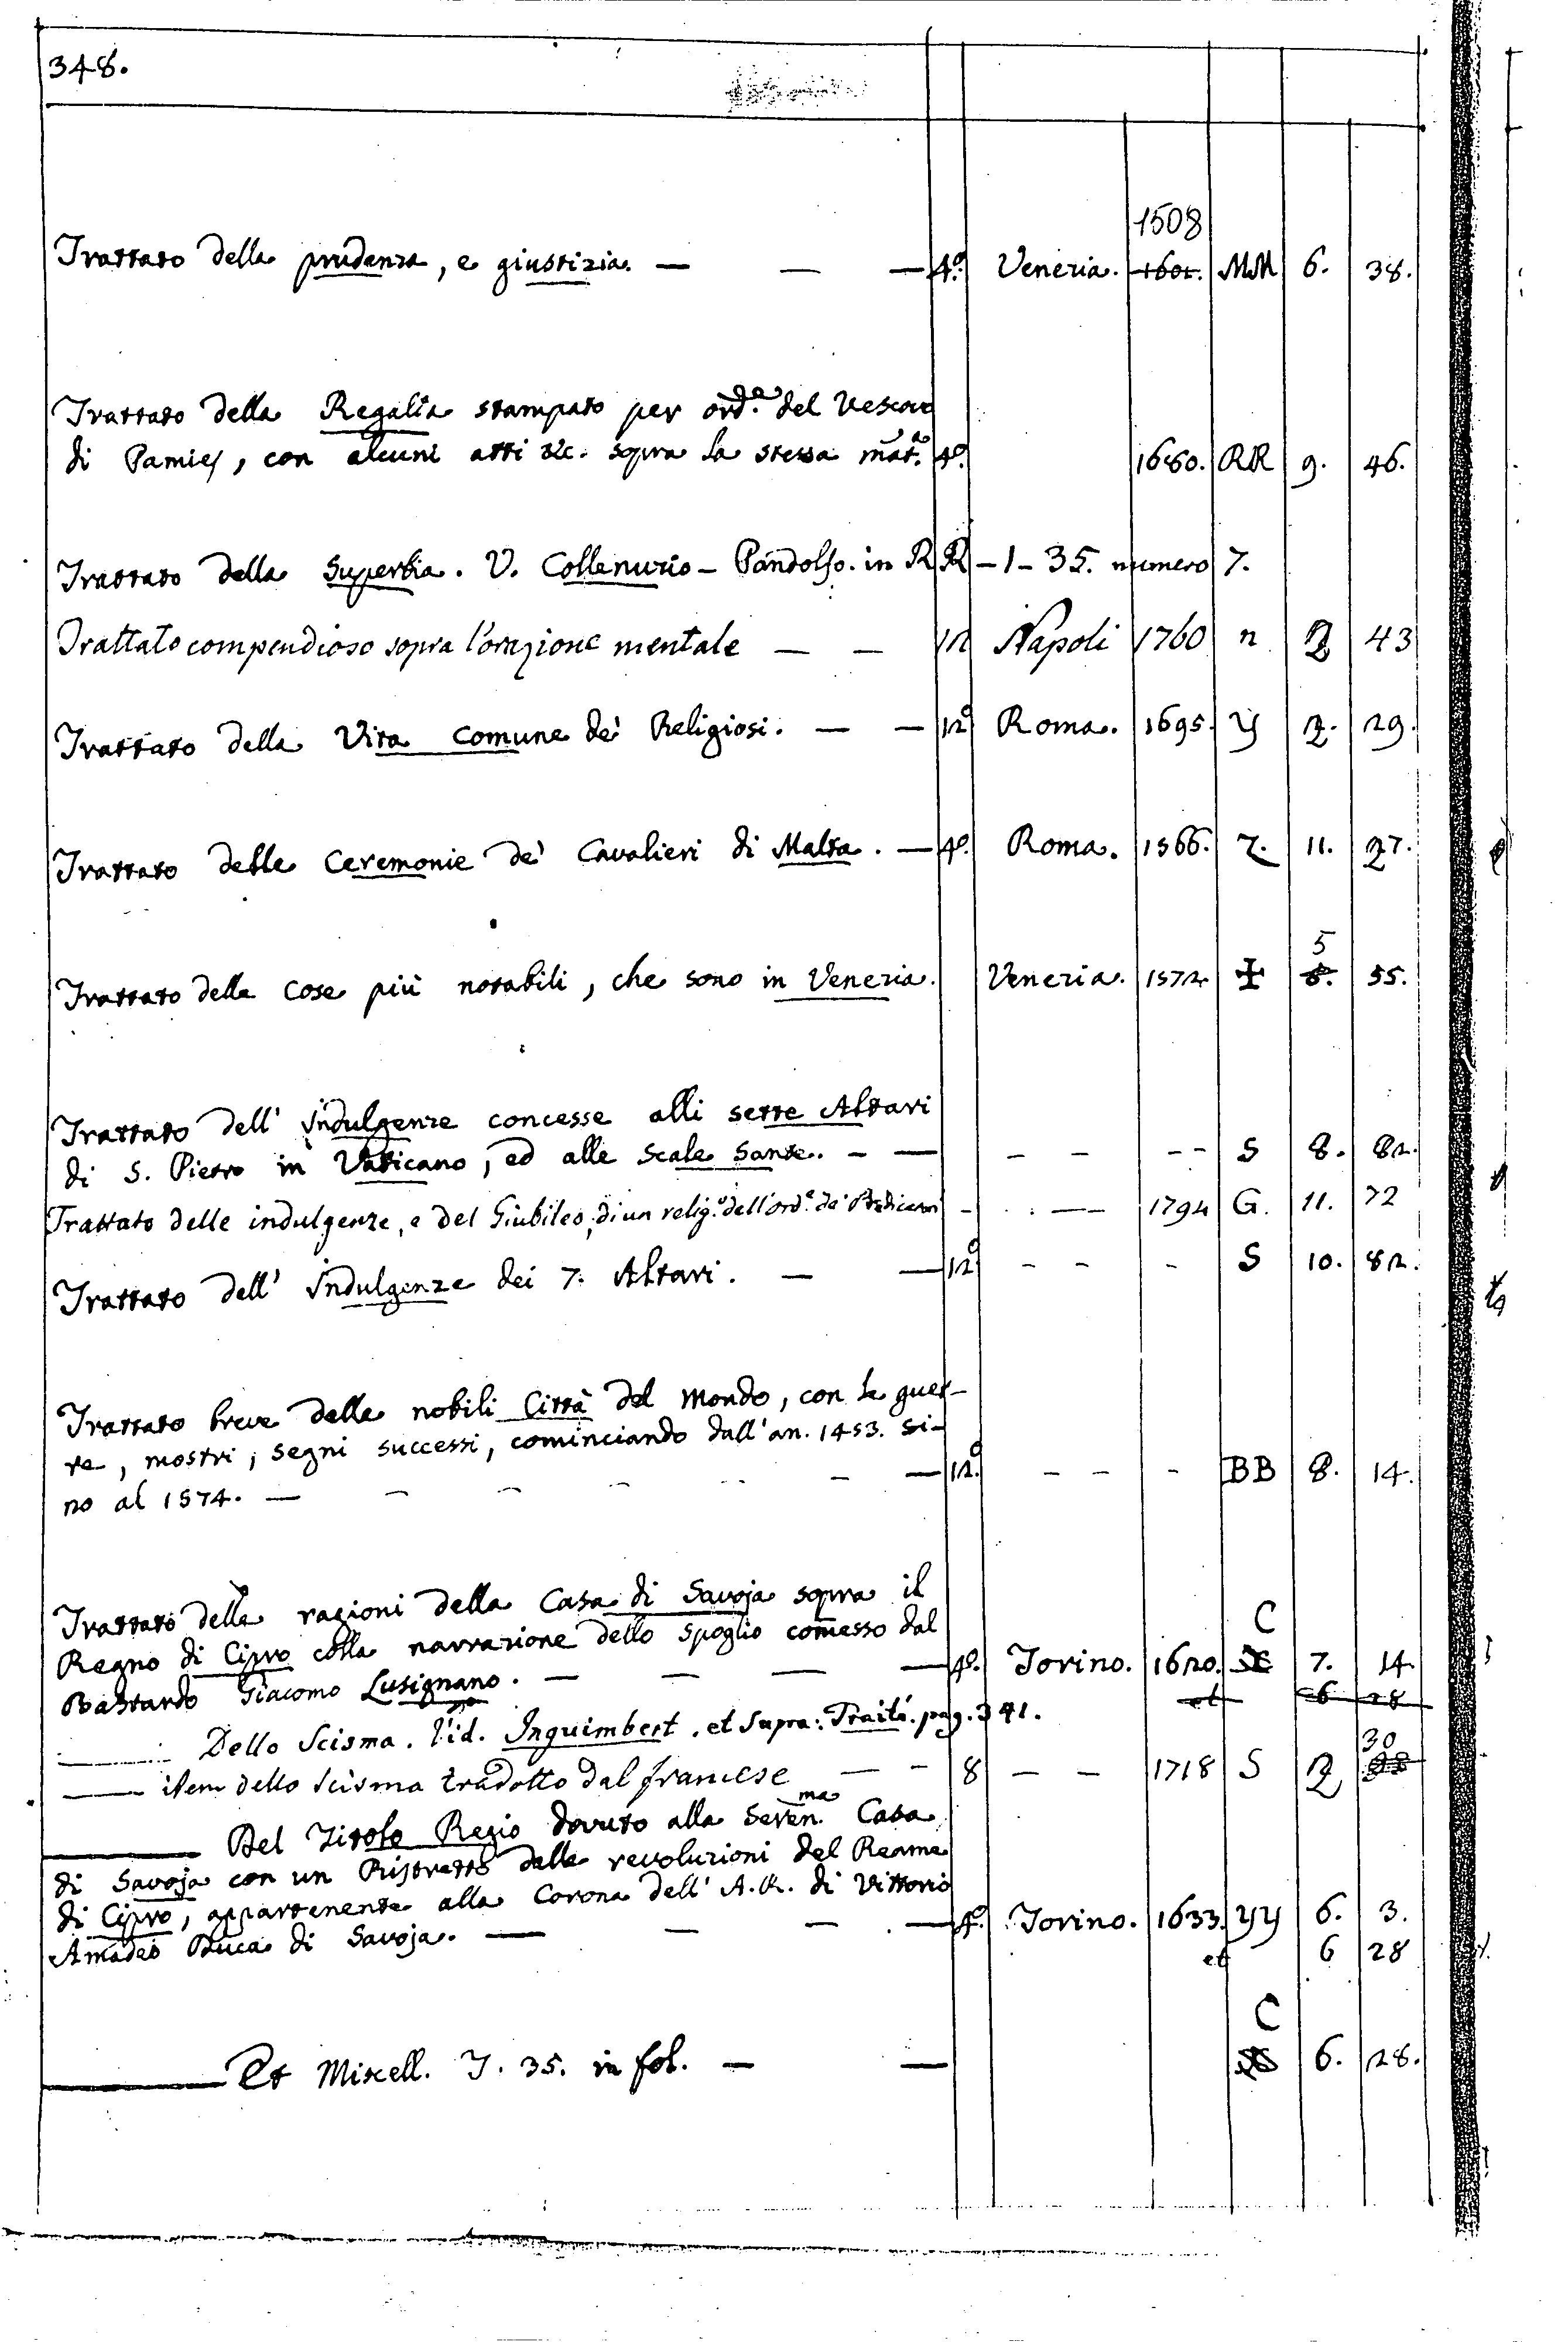 348.
1508
Trattato della prudenza, e giustizia. — — — 4.º Venezia. 1601. MM 6. 38.
Trattato della Regalia stampato per ord.e del Vescovo
di Pamies, con alcuni atti &c. sopra la stessa mat.a 4º. 1680. RR 9. 46.
Trattato della Superbia. V. Collenuzio - Pandolfo. in RR - 1 - 35. numero 7.
Trattato compendioso sopra l'orazione mentale — — 12 Napoli 1760 n 2 43
Trattato della Vita comune de' Religiosi. — — 12º Roma. 1695. Y 2. 29.
Trattato delle Ceremonie de' Cavalieri di Malta. — 4º. Roma. 1566. Z. 11. 27.
5
Trattato delle cose più notabili, che sono in Venezia. Venezia. 1572 ✠ 8. 55.
Trattato dell' Indulgenze concesse alli sette Altari
di S. Pietro in Vaticano, ed alle Scale Sante. - — - - - - S 8. 82.
Trattato delle indulgenze, e del Giubileo, di un relig.º dell'ord.e de' Predicatori - — — 1794 G. 11. 72
Trattato dell' Indulgenze dei 7. Altari. — — 12º - - - S 10. 82.
Trattato breve delle nobili Città del Mondo, con le guer-
re, mostri, segni successi, cominciando dall'an. 1453. si-
no al 1574. — - - - - — 12.º - - - BB 8. 14.
Trattato delle ragioni della Casa di Savoja sopra il
C
Regno di Cipro colla narrazione dello spoglio comesso dal
Bastardo Giacomo Lusignano. — — — — 4º. Torino. 1620. 7. 14.
et 6 28
—— Dello Scisma. Vid. Inguimbert. et Supra: Traité. pag. 341.
30
—— item dello Scisma tradotto dal francese — - 8 — - 1718 S 2
—— Del Titolo Regio dovuto alla Seren.ma Casa
di Savoja con un Ristretto delle revoluzioni del Reame
di Cipro, appartenente alla Corona dell' A.R. di Vittorio
Amadeo Duca di Savoja. — — - — 4º. Torino. 1633. YY 6. 3.
et 6 28
C
—— Et Miscell. Y. 35. in fol. — — 6. 28.